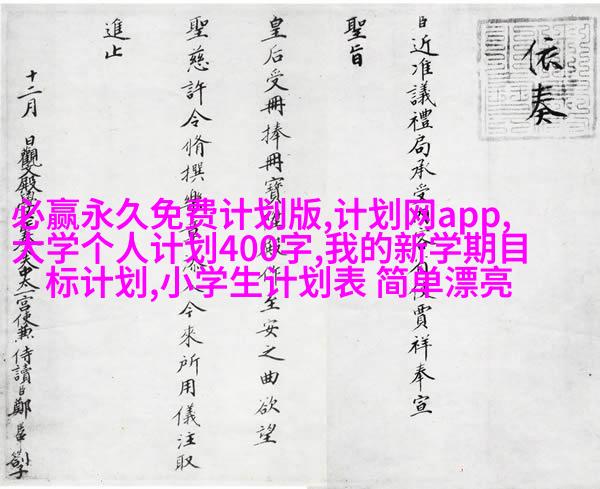 必赢永久免费计划版,计划网app,
大学个人计划400字,我的新学期目
标计划,小学生计划表 简单漂亮
依奏
臣近准議禮局承受賈祥奉宣
聖旨
皇后受冊捧冊寶至安之曲欲望
聖慈許令脩撰樂今來所用儀注取
進止
十二月 日觀文殿太一宮使兼侍讀臣鄭